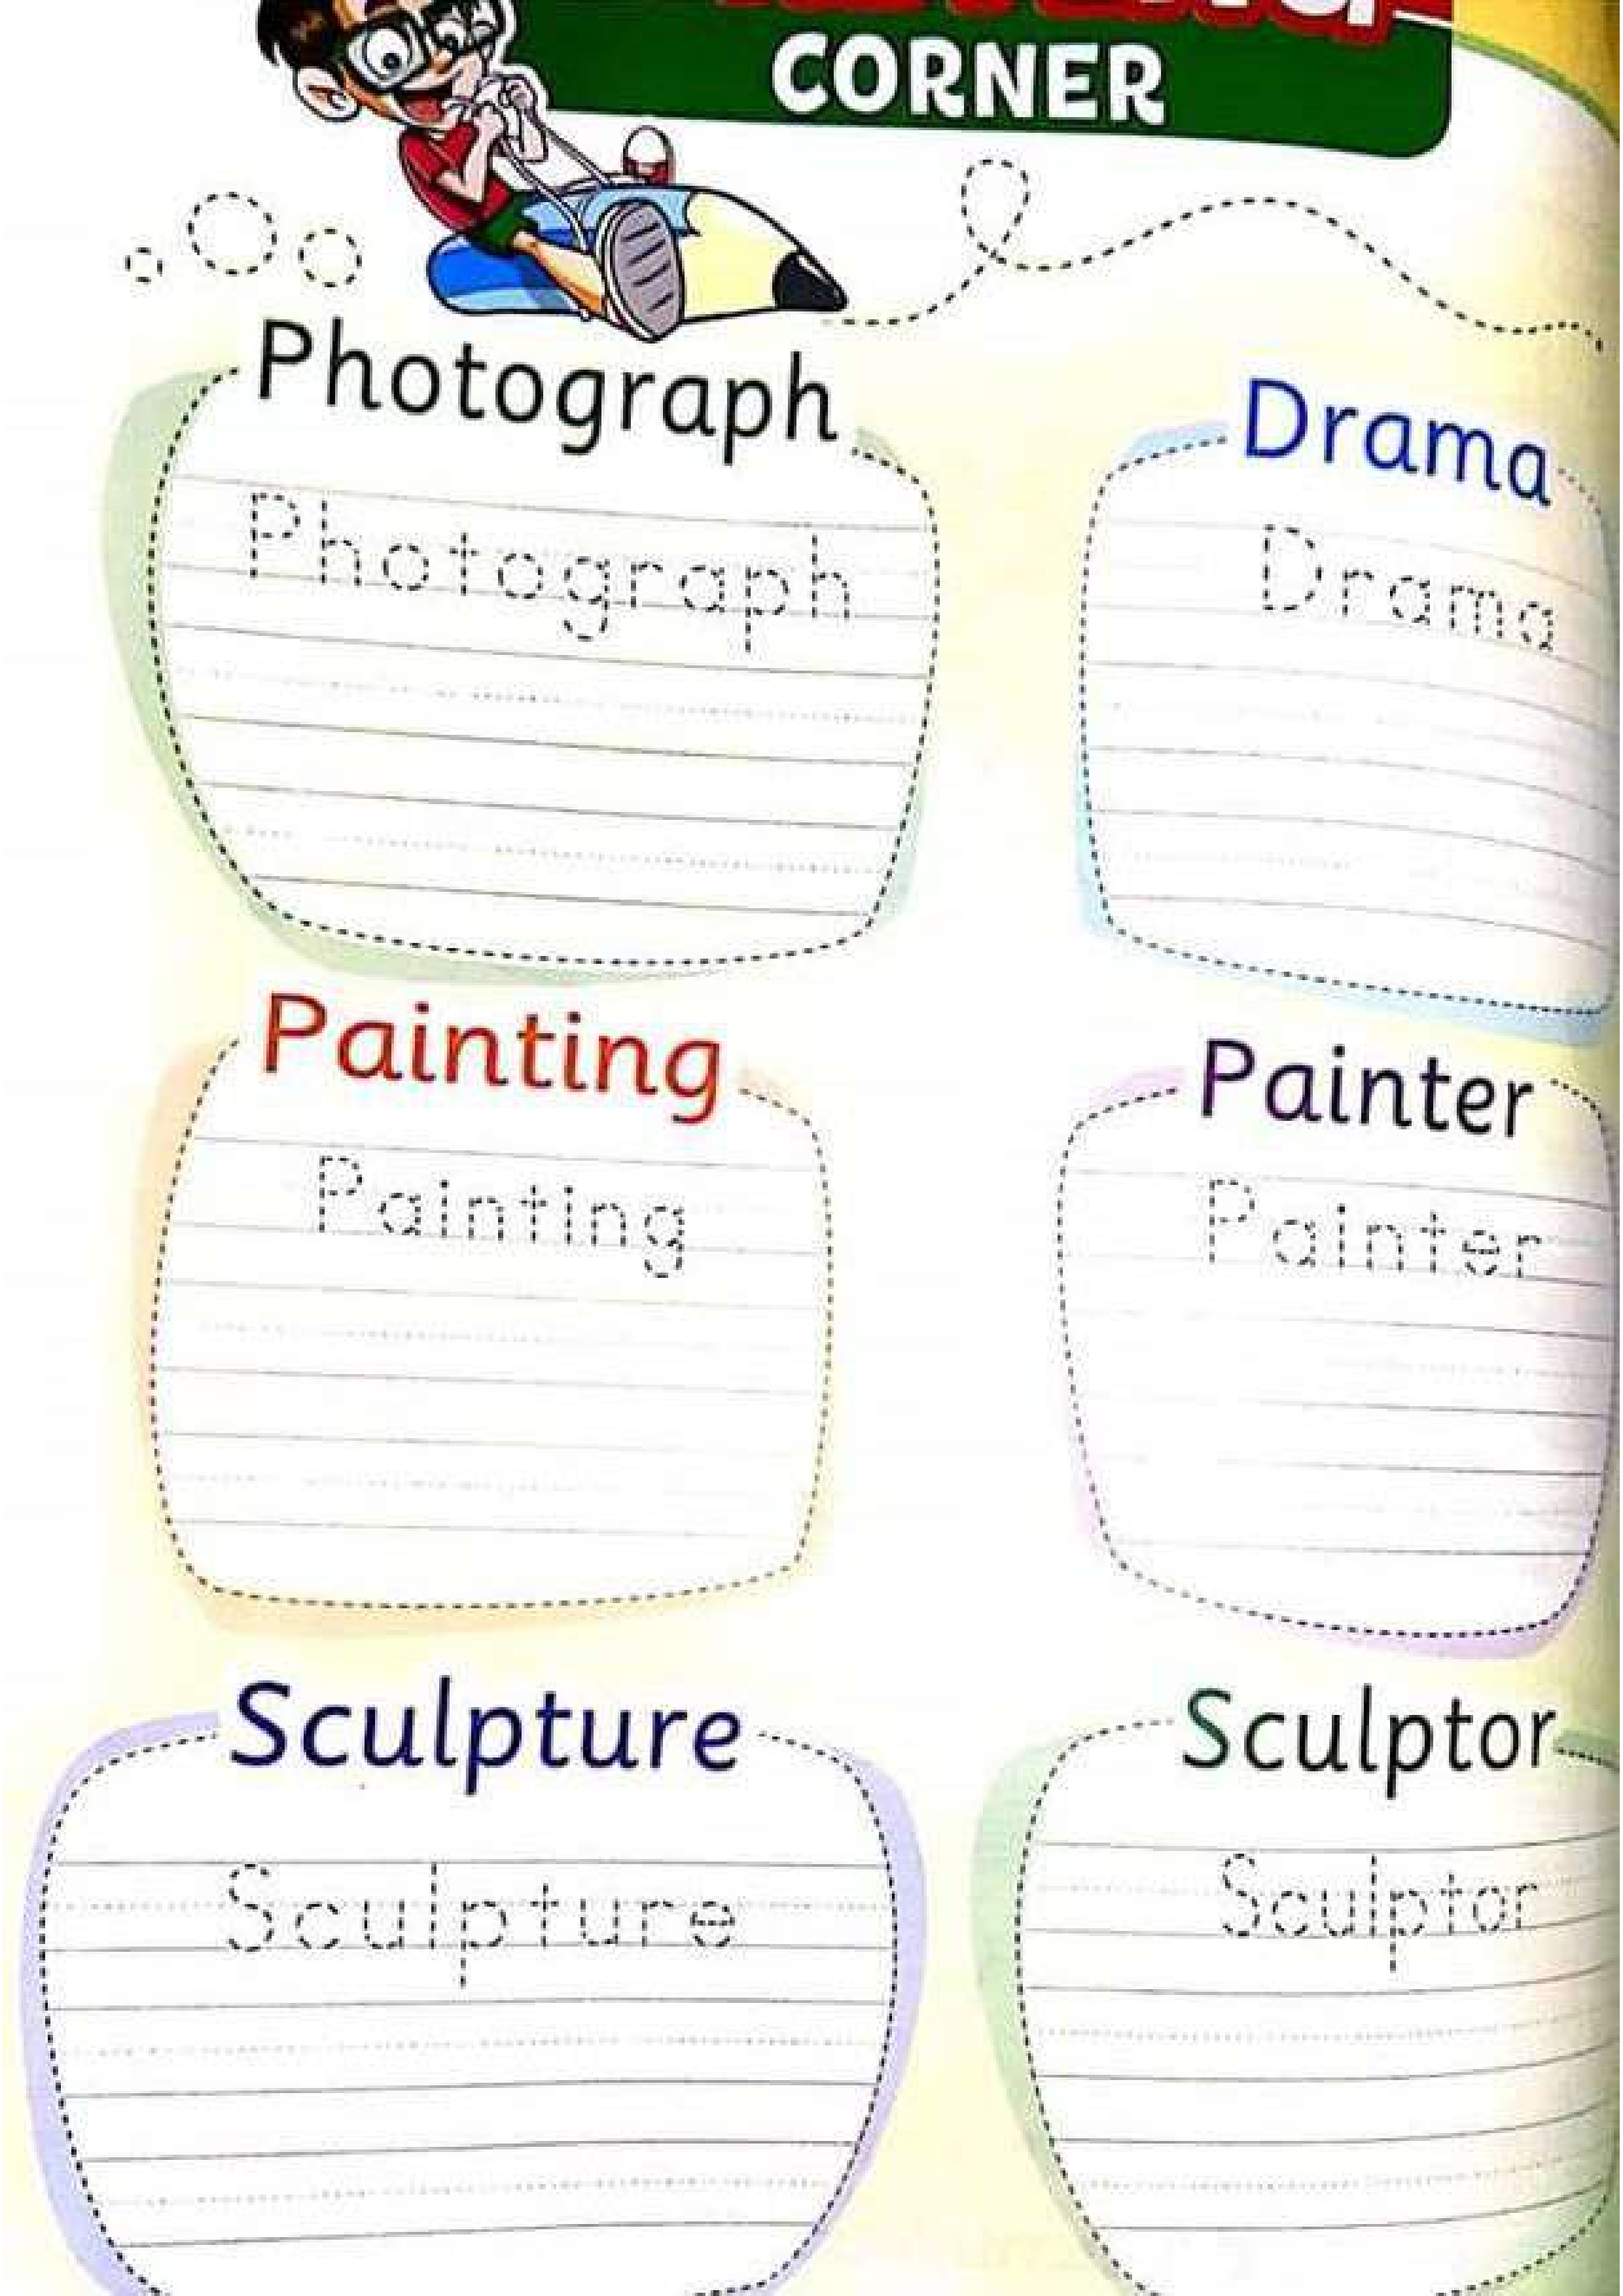 CORNER
Photograph
Drama
Photograph
Drama
Painting
Painter
Painting
Painter
Sculpture
Sculptor
Sculpture
Sculptor